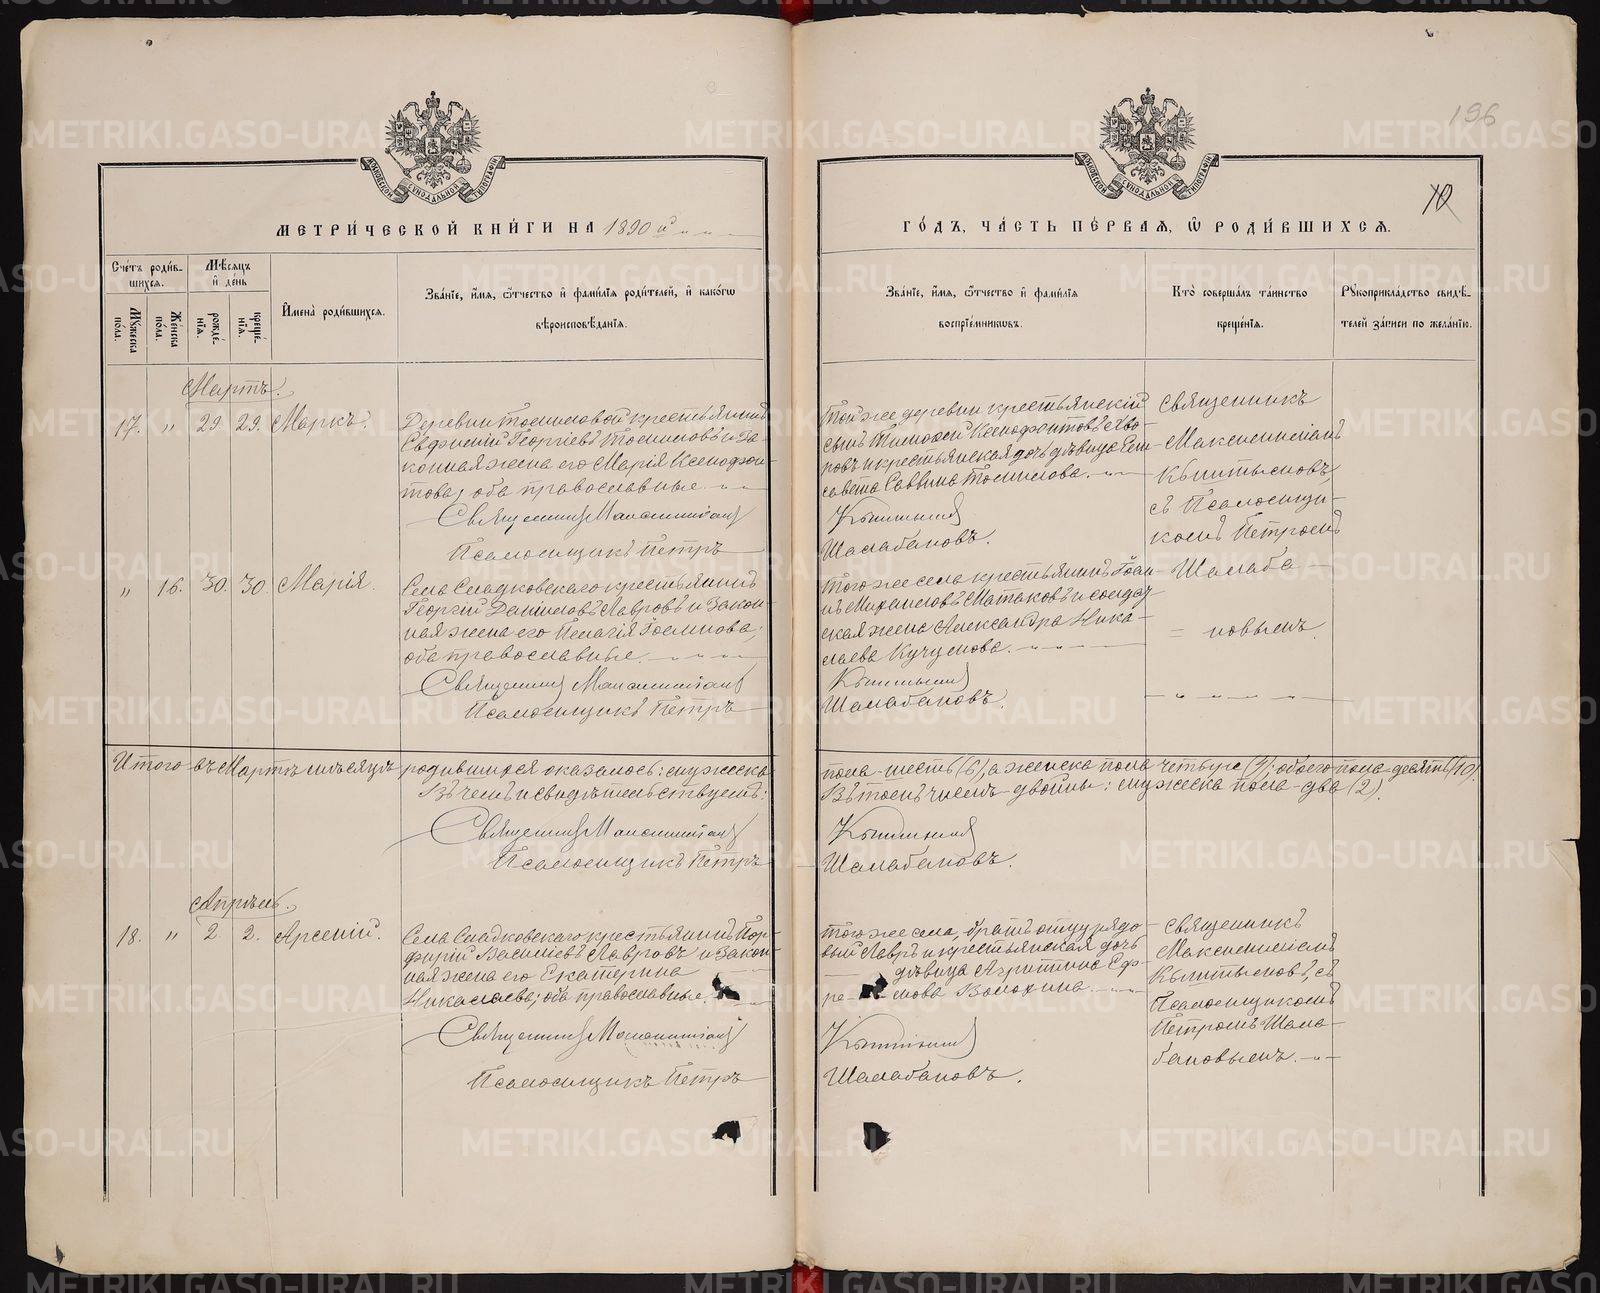 196
10
МЕТРИ́ЧЕСКОЙ КНИ́ГИ НА 1890 й
ГО́ДЪ, ЧА́СТЬ ПЕ́РВАЯ, Ѡ РОДИ́ВШИХСЯ.
Сче́тъ роди́в-
шихся.
Му́жеска по́ла.
Же́нска по́ла.
Мѣ́сяцъ
и҆ де́нь
рожде́-
нїѧ.
креще́-
нїѧ.
И҆мена̀ роди́вшихсѧ.
Зва́нїе, и҆́мѧ, ѻ҆́тчество и҆ фами́лїѧ роди́телей, и҆ како́гѡ
вѣроисповѣ́данїѧ.
Зва́нїе, и҆́мѧ, ѻ҆́тчество и҆ фами́лїѧ
воспрїе́мникѡвъ.
Кто̀ соверша́лъ та́инство
креще́нїѧ.
Рꙋкоприкла́дство свидѣ́-
телей за́писи по жела́нїю.
Мартъ.
17. " 29. 29. Маркъ.
Деревни Томиловой крестьянинъ
Евфимій Георгіевъ Томиловъ и за-
конная жена его Марія Ксенофон-
това; оба православные.
Священникъ Максимиліанъ
Псаломщикъ Петръ
Той же деревни крестьянскій
сынъ Тимофей Ксенофонтовъ
и крестьянская дочь дѣвица Ели-
савета Саввина Томилова.
Шалабановъ.
Священникъ
Максимиліанъ
съ Псаломщи-
комъ Петромъ
Шалаба-
= новымъ.
" 16. 30. 30. Марія.
Села Сладковскаго крестьянинъ
Георгій Даніиловъ Лавровъ и закон-
ная жена его Пелагія
оба православные.
Священникъ Максимиліанъ
Псаломщикъ Петръ
Того же села крестьянинъ Іоан-
нъ Михаиловъ Матаковъ и солдат-
ская жена Александра Нико-
лаева Кучумова.
Шалабановъ.
Итого въ Мартѣ мѣсяцѣ родившихся оказалось: мужеска
пола-шесть (6), а женска пола четыре (4); обоего пола-десять (10).
Въ чемъ и свидѣтельствуемъ:
Въ томъ числѣ двойни: мужеска пола-два (2).
Священникъ Максимиліанъ
Псаломщикъ Петръ
Шалабановъ.
Апрѣль.
18. " 2. 2. Арсеній.
Села Сладковскаго крестьянинъ Пор-
фирій Василіевъ Лавровъ и закон-
ная жена его Екатерина
Николаева; оба православные.
Священникъ Максимиліанъ
Псаломщикъ Петръ
Того же села, братъ отцу рядо-
вый Лавръ и крестьянская дочь
дѣвица Агриппина Еф-
ре- мова
Шалабановъ.
Священникъ
Максимиліанъ
съ
Псаломщикомъ
Петромъ Шала-
бановымъ.
METRIKI.GASO-URAL.RU